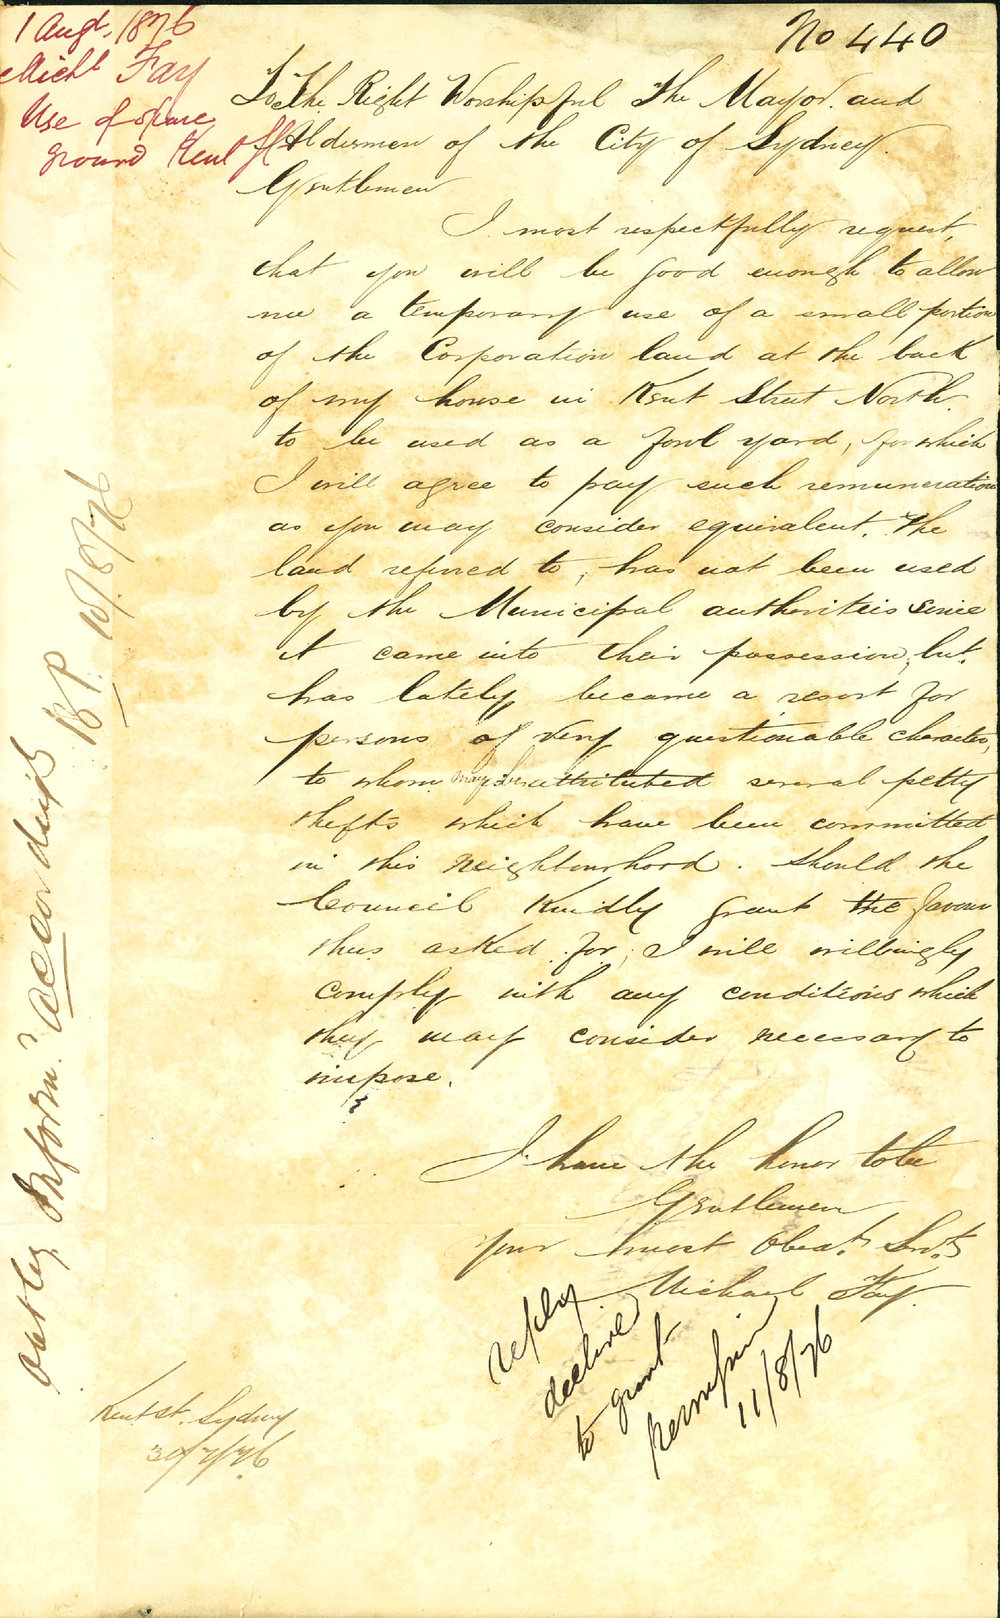 1 Augt. 1876
Michl Fay
Use of
ground Kent St
No 440
To The Right Worshipful The Mayor and
Aldermen of the City of Sydney.
Gentlemen
I most respectfully request,
that you will be good enough to allow
me a temporary use of a small portion
of the Corporation land at the back
of my house in Kent Street North.
to be used as a fowl yard, for which
I will agree to pay such remuneration
as you may consider equivalent. The
land refered to, has not been used
by the Municipal authorities since
it came into their possession, but
has lately became a resort for
persons of very questionable character,
to whom may be attributed several petty
thefts which have been committed
in this neighbourhood. Should the
Council Kindly grant the favour
thus asked for, I will willingly
comply with any conditions which
they may consider necessary to
impose.
I have the honor to be
Gentlemen
Your most Obedt. Servt.
Michael Fay.
Kent St. Sydney
30/7/76
reply
decline
to grant
permission
11/8/76
Inform. accordingly
10/8/76